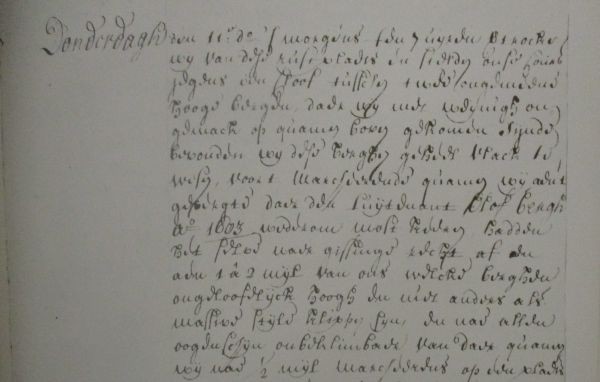 Donderdagh den 11:e do: 's morgens ten 7 uijren vertrocken
wij van dese rust plaets en stelden onse cours
jegens een kloof tusschen twee ongemeene
hooge bergen, daer wij met weijnigh on,
gemack op quamen boven gekomen sijnde
bevonden wij dese berghen geheel vlack te
wesen, voort marcheerende quamen wij aen't
gebergte daer den luijtenant Olof bergh
A:o 1683 wederom most keeren, hadden
het selve naer gissinge recht af en
aen 1 à 2 mijl van ons welcke berghen
ongelooflijck hoogh en niet anders als
massive stijle klippen sijn, en nae allen
oogenschijn onbeklimbaer van daer quamen
wij nae ½ mijl marcheerens op een plaets